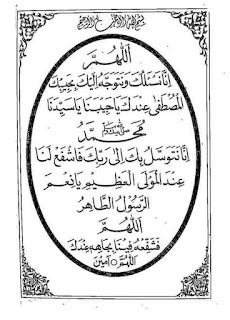 بسم الله الرحمن الرحيم
اَللّٰهُمَّ
اِنَّا نَسْئَلُكَ وَنَتَوَجَّهُ اِلَيْكَ بِحَبِيْبِكَ
الْمُصْطَفٰى عِنْدَكَ يَا حَبِيْبَنَا يَا سَيِّدَنَا
مُحَمَّدُ ﷺ
اِنَّا نَتَوَسَّلُ بِكَ اِلٰى رَبِّكَ فَاشْفَعْ لَنَا
عِنْدَ الْمَوْلَى الْعَظِيْمِ يَا نِعْمَ
الرَّسُوْلُ الطَّاهِرُ
اَللّٰهُمَّ
فَشَفِّعْهُ فِيْنَا بِجَاهِهٖ عِنْدَكَ
اَللّٰهُمَّ ○ اٰمِيْن